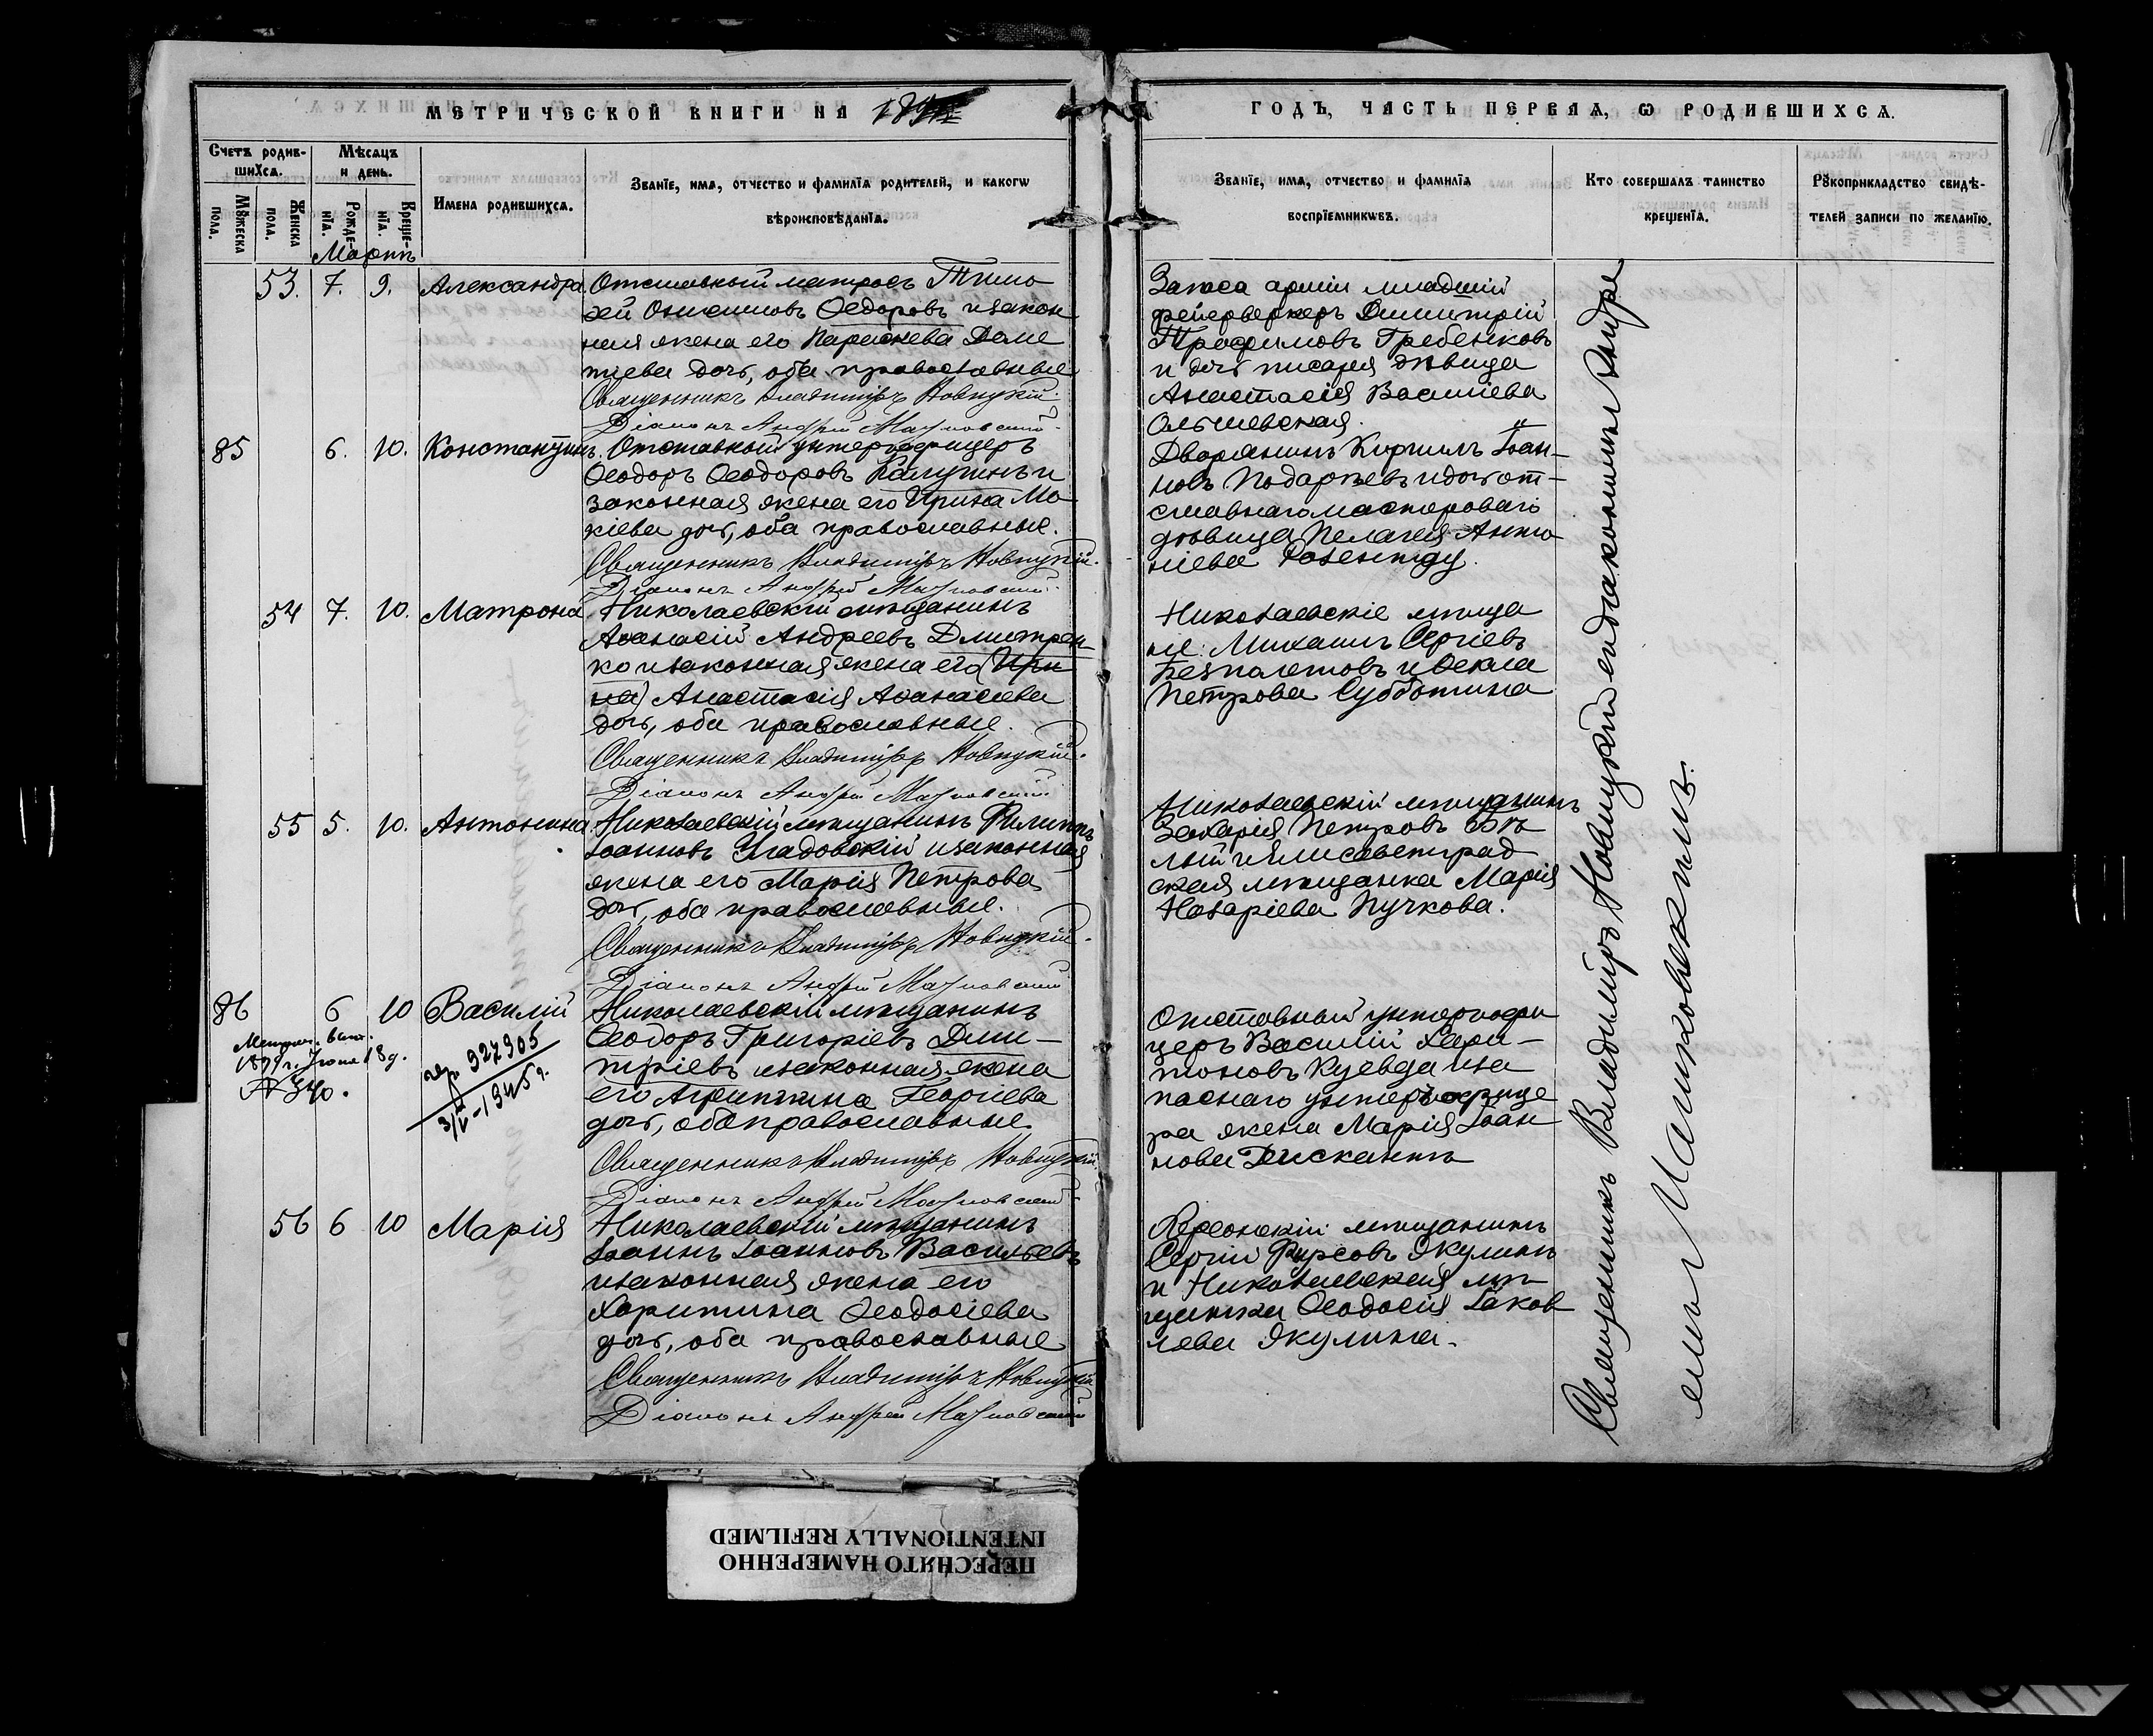 МЕТРИЧЕСКОЙ КНИГИ НА 189
ГОДЪ, ЧАСТЬ ПЕРВАЯ, Ѡ РОДИВШИХСѦ.
Счетъ родив-
шихсѧ.
Мѣсѧцъ
и день.
Мꙋжеска
пола.
Женска
пола.
Рожде-
нїѧ.
Креще-
нїѧ.
Имена родившихсѧ.
Званїе, имѧ, отчество и фамилїѧ родителей, и какогѡ
вѣроисповѣданїѧ.
Званїе, имѧ, отчество и фамилїѧ
воспрїемникѡвъ.
Кто совершалъ таинство
крещенїѧ.
Рꙋкоприкладство свидѣ-
телей записи по желанїю.
Мартъ
53. 7. 9. Александра
Отставной матросъ Тимо
ѳей Онисимовъ Ѳедоровъ и закон
ная жена его Параскева Доме
тіева дочь, оба православные
Священникъ Владиміръ Новицкій.
Діаконъ Андрей
Запаса арміи младшій
фейерверкеръ Димитрій
Трофимовъ Гребенковъ
и дочь писаря дѣвица
Анастасія Василіева
Ольшевская.
85 6. 10. Константинъ.
Отставной унтеръ-офицеръ
Ѳеодоръ Ѳеодоровъ Калугинъ и
законная жена его Ирина Мо
кіева дочь, оба православные.
Священникъ Владиміръ Новицкій.
Діаконъ Андрей
Дворянинъ Кириллъ Іоан-
новъ Подарѣевъ и дочь от-
ставнаго мастероваго
дѣвица Пелагія Анто
ніева
54 7. 10. Матрона
Николаевскій мѣщанинъ
Аѳанасій Андреевъ Дмитрен
ко и законная жена его (Ири
на) Анастасія Аѳанасіева
дочь, оба православные.
Священникъ Владиміръ Новицкій.
Діаконъ Андрей
Николаевскіе мѣща
не: Михаилъ Сергіевъ
Безпалотовъ и Ѳекла
Петрова Субботина
55 5. 10. Антонина
Николаевскій мѣщанинъ Филиппъ
Іоанновъ Сладовскій и законная
жена его Марія Петрова
дочь, оба православные.
Священникъ Владиміръ Новицкій.
Діаконъ Андрей
Николаевскій мѣщанинъ
Захарія Петровъ Бѣ
лый и Елисаветград
ская мѣщанка Марія
Назаріева Пучкова.
86 6 10 Василій
Метрич. выд.
1899 г. Іюня 18 д.
№ 340.
927905
3/V-1945 г.
Николаевскій мѣщанинъ
Ѳеодоръ Григоріевъ Дми-
тріевъ и законная жена
его Агриппина Георгіева
дочь, оба православные.
Священникъ Владиміръ Новицкій
Діаконъ Андрей
Отставной унтеръ-офи
церъ Василій Хари-
тоновъ Куевда и за
паснаго унтеръ-офице
ра жена Марія Іоан
нова Дискантъ
56 6 10 Марія
Николаевскій мѣщанинъ
Іоаннъ Іоанновъ Васильевъ
и законная жена его
Харитина Ѳеодосіева
дочь, оба православные
Священникъ Владиміръ Новицкій
Діаконъ Андрей
Херсонскій мѣщанинъ
Сергій Фирсовъ Якулинъ
и Николаевская мѣ
щанка Ѳеодосія Іаков
лева Якулина.
Священникъ Владиміръ Новицкій съ діакономъ Андре
емъ
ПЕРЕСНЯТО НАМЕРЕННО
INTENTIONALLY REFILMED